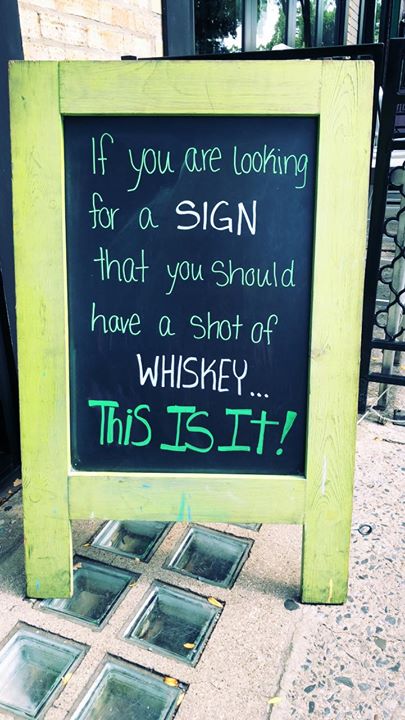 If you are looking
for a SIGN
that you should
have a shot of
WHISKEY...
THiS IS It!